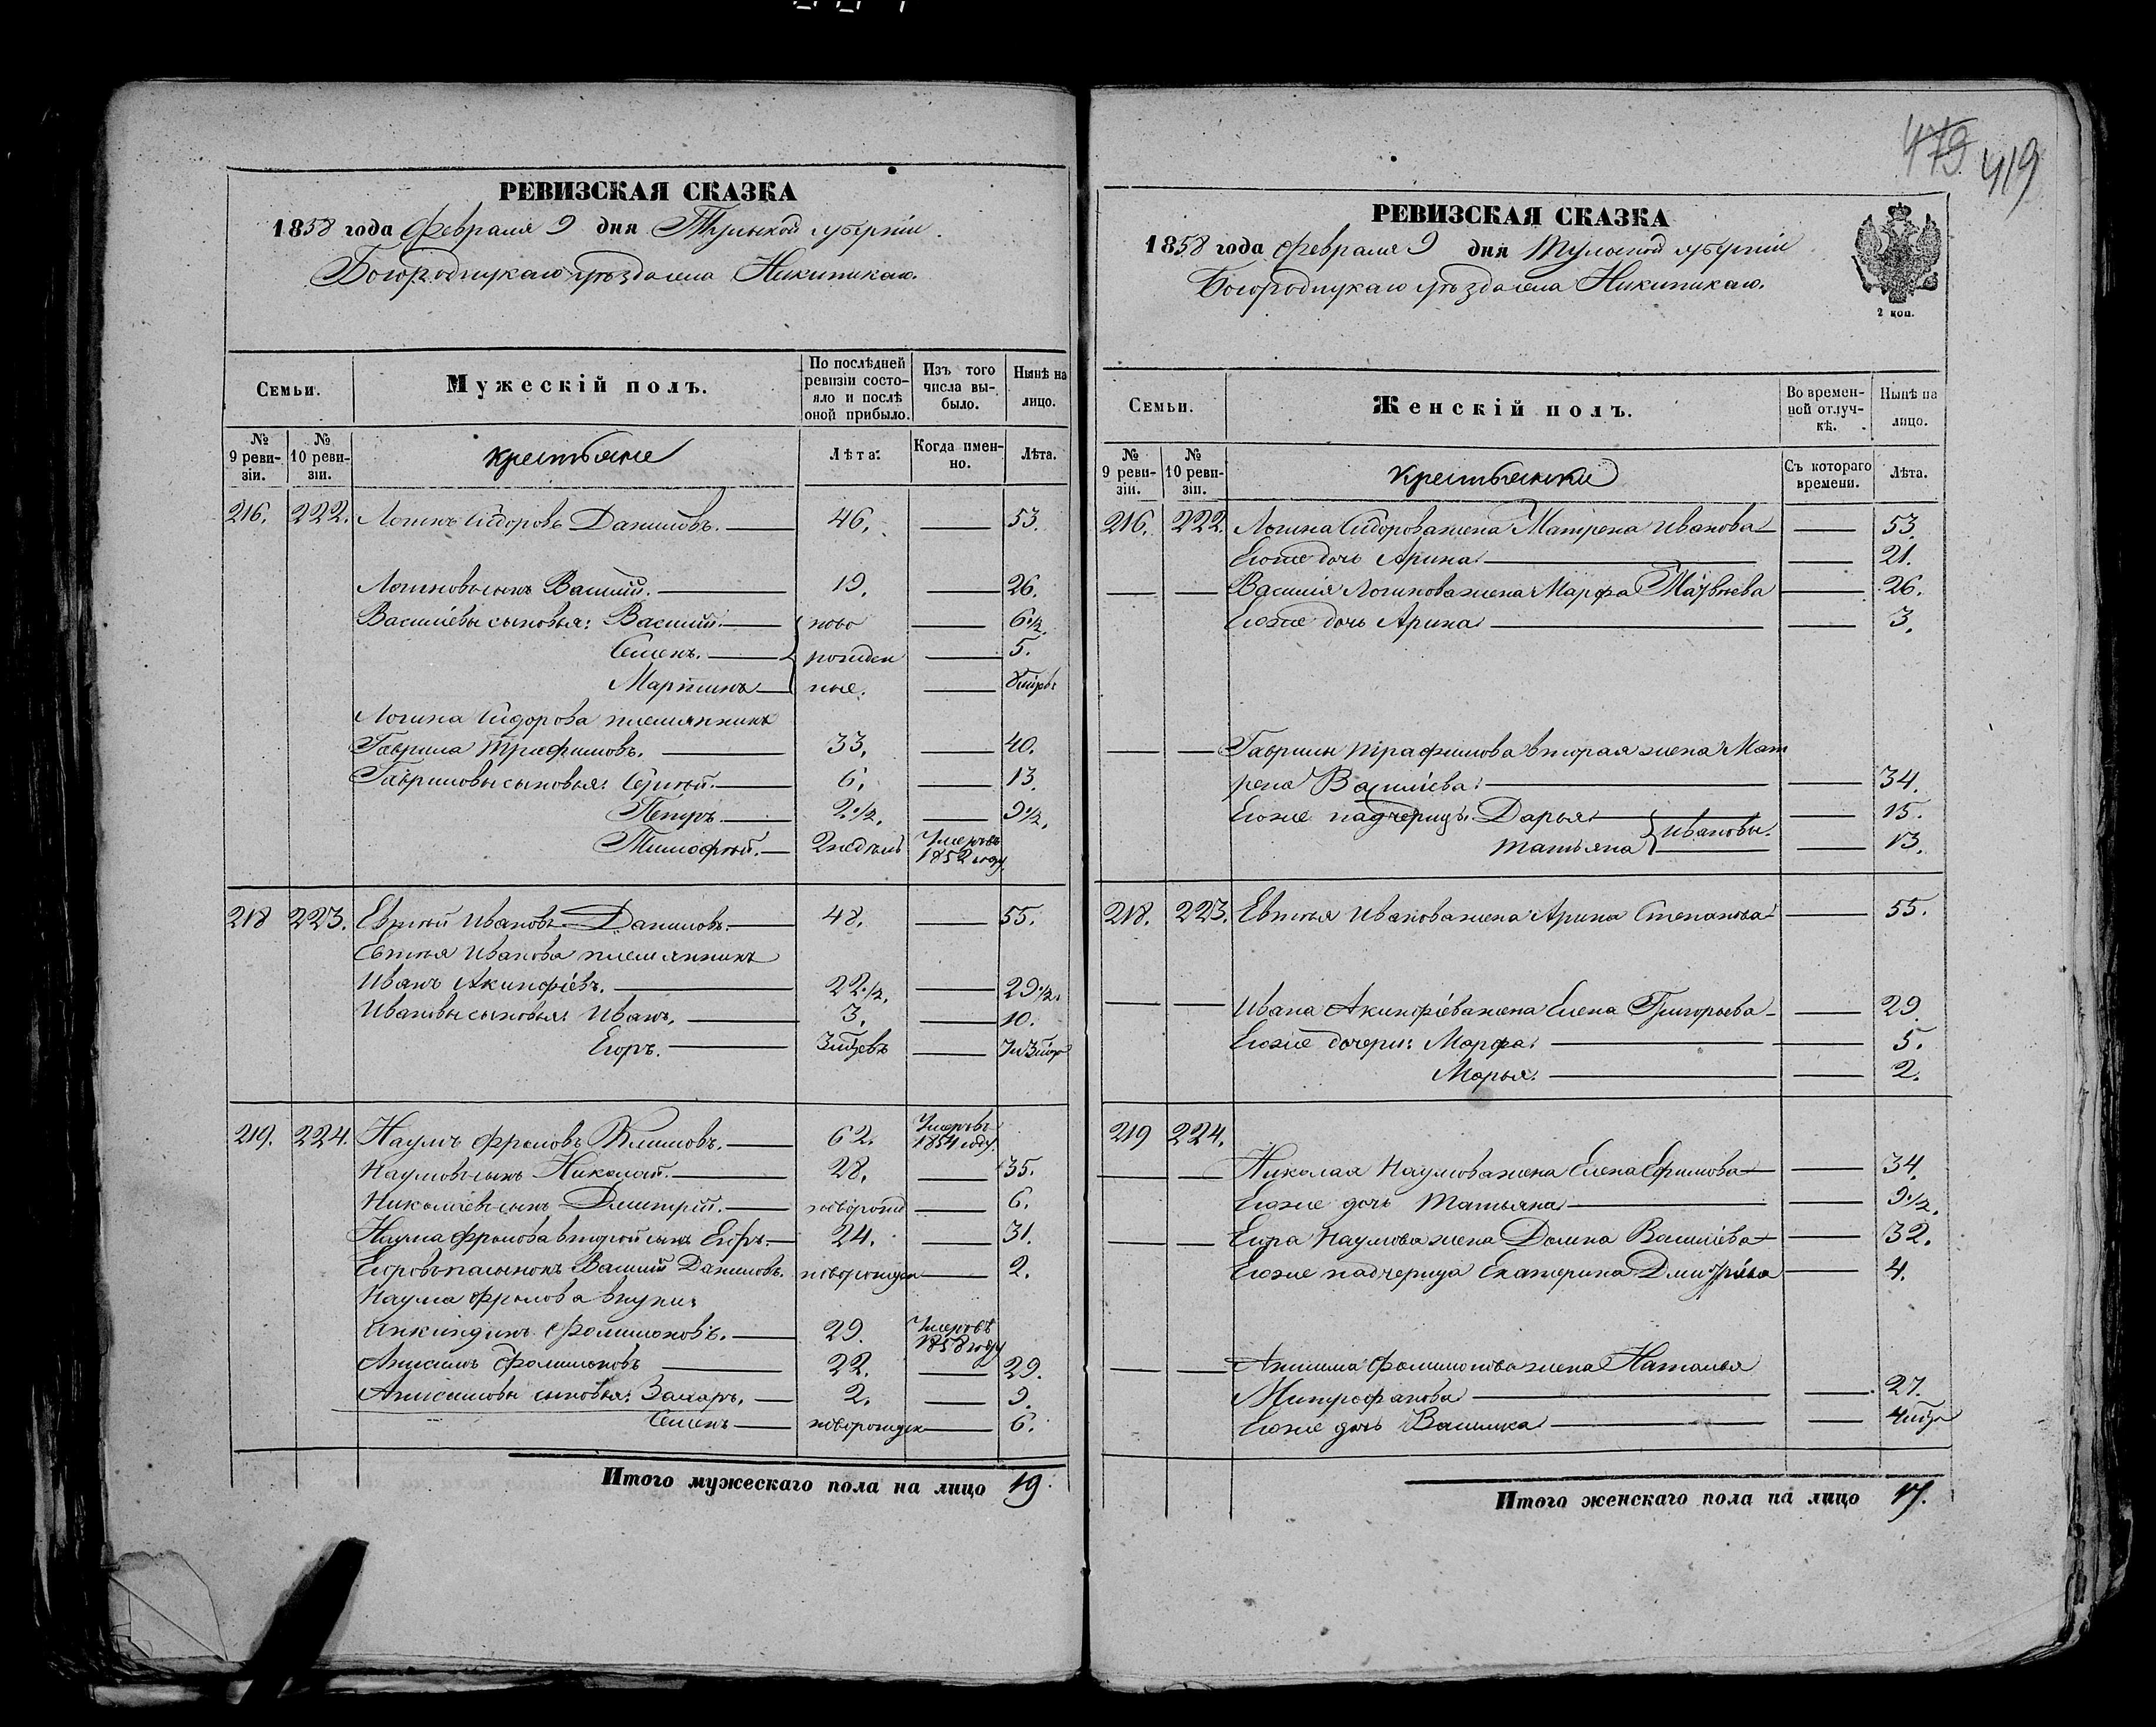 479 419
РЕВИЗСКАЯ СКАЗКА
1858 года Февраля 9 дня Тульской губернiи
Богородицкаго уѣзда села Никитскаго.
Семьи.
Мужескiй полъ.
По послѣдней ревизiи состояло и послѣ оной прибыло.
Изъ того числа выбыло.
Нынѣ на лицо.
№ 9 ревизiи.
№ 10 ревизiи.
крестьяне
Лѣта.
Когда именно.
Лѣта.
216. 222. Логинъ Сидоровъ Даниловъ. 46. 53.
Логиновъ сынъ Василiй. 19. 26.
Василiевы сыновья: Василiй. ново 6½.
Семенъ. рожден 5.
Мартинъ ные.
Логина Сидорова племянникъ
Гаврила Трафимовъ. 33. 40.
Гавриловы сыновья: Сергѣй. 6. 13.
Петръ. 2½. 9½.
Тимофѣй. 2 недѣль Умеръ въ 1852 году.
218 223. Евтѣй Ивановъ Даниловъ. 48. 55.
Евтѣя Иванова племянникъ
Иванъ Акинфiевъ. 22½. 29½.
Ивановы сыновья: Иванъ. 3. 10.
Егоръ. 3 мѣсцевъ 7 и 3 мѣсц
219. 224. Наумъ Фроловъ Климовъ. 62. Умеръ въ 1854 году.
Наумовъ сынъ Николай. 28. 35.
Николаевъ сынъ Дмитрiй. новорожд 6.
Наума Фролова второй сынъ Егоръ. 24. 31.
Егоровъ пасынокъ Василiй Даниловъ. новорожден 2.
Наума Фролова внуки:
Анкиндинъ Филимоновъ. 29. Умеръ въ 1858 году
Анисимъ Филимоновъ 22. 29.
Анисимовы сыновья: Захаръ. 2. 9.
Семенъ новорожден 6.
Итого мужескаго пола на лицо 19.
РЕВИЗСКАЯ СКАЗКА
1858 года Февраля 9 дня Тульской губернiи
Богородицкаго уѣзда села Никитскаго.
2 коп.
Семьи.
Женскiй полъ.
Во временной отлучкѣ.
Нынѣ на лицо.
№ 9 ревизiи.
№ 10 ревизiи.
крестьянки
Съ котораго времени.
Лѣта.
216. 222. Логина Сидорова жена Матрена Иванова 53.
Егоже дочь Арина 21.
Василiя Логинова жена Марфа Матвѣева 26.
Егоже дочь Арина 3.
Гаврилы Трафимова вторая жена Мат
рена Василiева 34.
Егоже падчерицы: Дарья 15.
Татьяна Ивановы. 13.
218. 223. Евтѣя Иванова жена Арина Степанова 55.
Ивана Акинфiева жена Елена Григорьева 29
Егоже дочери: Марфа 5.
Марья. 2.
219 224.
Николая Наумова жена Елена Ефимова 34.
Егоже дочь Татьяна 9½.
Егора Наумова жена Домна Василiева 32.
Егоже падчерица Екатерина Дмитрiева 4.
Анисима Филимонова жена Наталья
Митрофанова 27.
Егоже дочь Василиса 4 мѣсц
Итого женскаго пола на лицо 17.